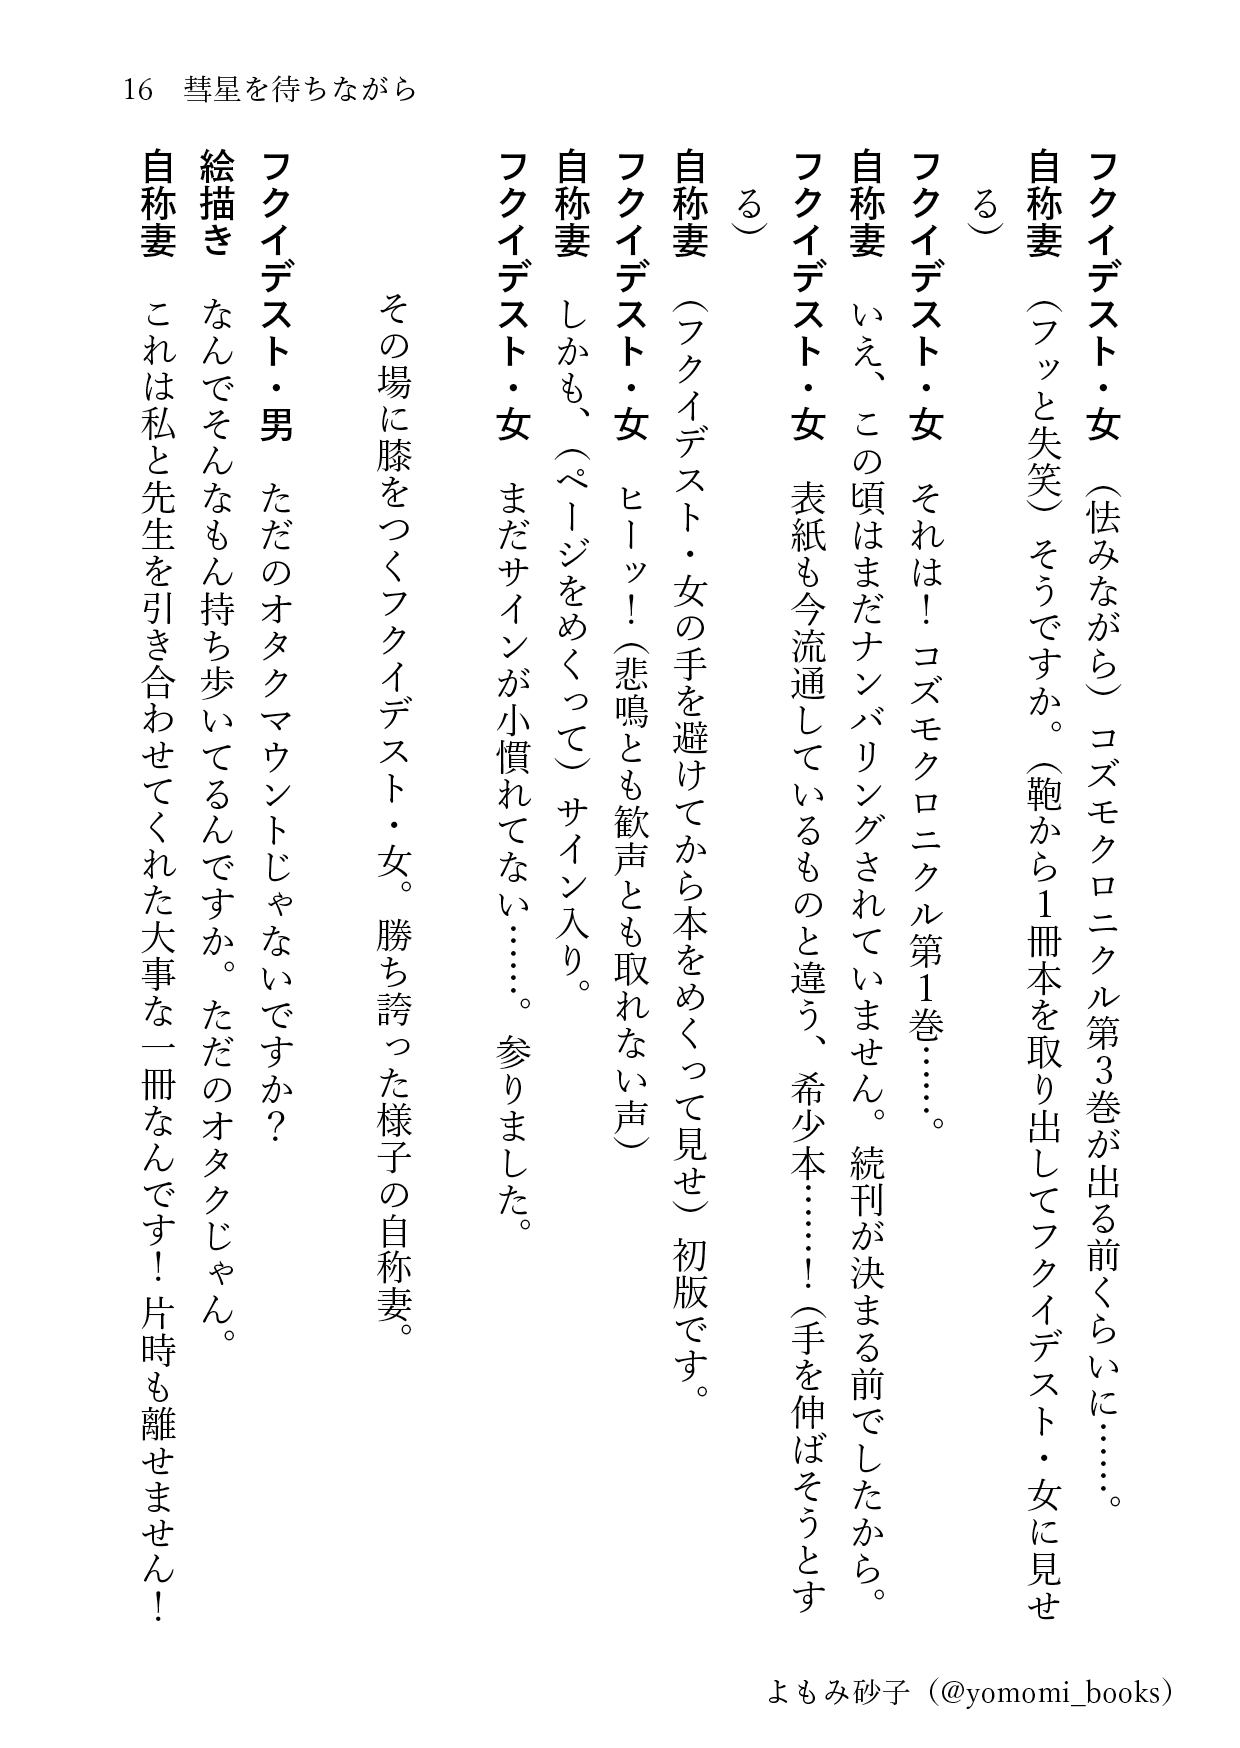 16 彗星を待ちながら
フクイデスト・女 （怯みながら）コズモクロニクル第３巻が出る前くらいに……。
自称妻 （フッと失笑）そうですか。（鞄から１冊本を取り出してフクイデスト・女に見せ
る）
フクイデスト・女 それは！コズモクロニクル第１巻……。
自称妻 いえ、この頃はまだナンバリングされていません。続刊が決まる前でしたから。
フクイデスト・女 表紙も今流通しているものと違う、希少本……！（手を伸ばそうとす
る）
自称妻 （フクイデスト・女の手を避けてから本をめくって見せ）初版です。
フクイデスト・女 ヒーッ！（悲鳴とも歓声とも取れない声）
自称妻 しかも、（ページをめくって）サイン入り。
フクイデスト・女 まだサインが小慣れてない……。参りました。
その場に膝をつくフクイデスト・女。勝ち誇った様子の自称妻。
フクイデスト・男 ただのオタクマウントじゃないですか？
絵描き なんでそんなもん持ち歩いてるんですか。ただのオタクじゃん。
自称妻 これは私と先生を引き合わせてくれた大事な一冊なんです！片時も離せません！
よもみ砂子（@yomomi_books）